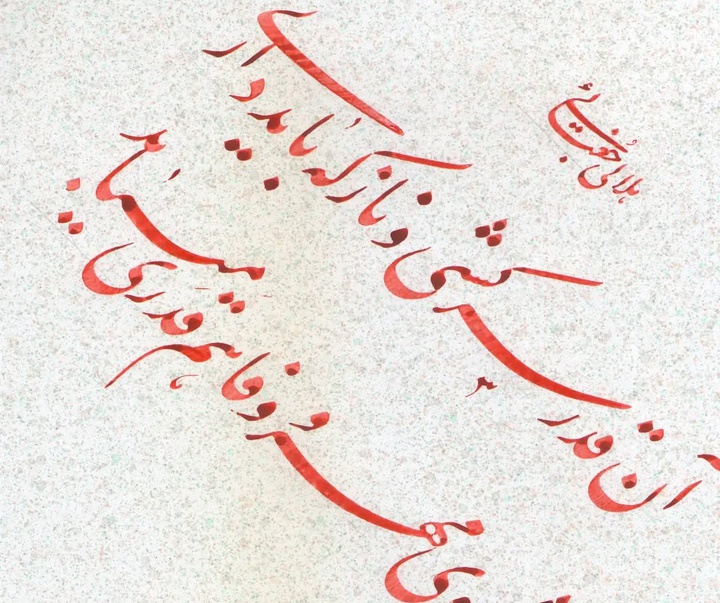 هلالی جغتایی
آن قدر سرکشی و ناز که باید داری
مهر و وفا هم قدری میباید